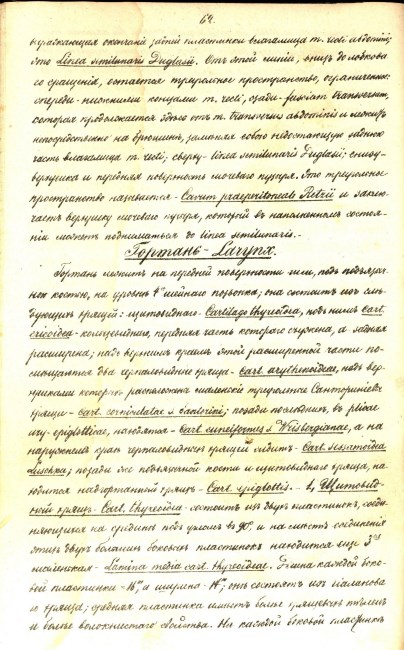 64.
выражающая окончаніе задней пластинки влагалища m. recti abdominis;
это Linea semilunaris Duglasii. Отъ этой линіи, внизъ до лобковаго
сращенія, остается треугольное пространство, ограниченное:
спереди - нижними концами m. recti, сзади - fascia transversa,
которая продолжается здѣсь отъ m. transversus abdominis и лежитъ
непосредственно на брюшинѣ, замѣняя собою недостающую заднюю
часть влагалища m. recti; сверху - linea semilunaris Duglasii; снизу -
верхушка и передняя поверхность мочеваго пузыря. Это треугольное
пространство называется - Cavum praeperitoneale Retzii и заклю-
чаетъ верхушку мочеваго пузыря, который въ наполненномъ состоя-
ніи можетъ подниматься до linea semilunaris. -
Гортань - Larynx.
Гортань лежитъ на передней поверхности шеи, подъ подъязыч-
ной костью, на уровнѣ 4го шейнаго позвонка; она состоитъ изъ слѣ-
дующихъ хрящей: щитовиднаго - Cartilago thyreoidea, подъ нимъ Cart.
cricoidea - кольцевидная, передняя часть котораго съужена, а задняя
расширена; надъ верхнимъ краемъ этой расширенной части по-
мѣщаются два черпаловидные хряща - cart. arythenoideae, надъ вер-
хушками которыхъ расположены маленькіе треугольные Санториніевы
хрящи - cart. corniculatae s. Santorini; позади послѣднихъ, въ plicae
ary-epiglotticae, находятся - Cart. cuneiformes s. Wrisbergianae, а на
наружномъ краѣ черпаловидныхъ хрящей сидитъ - Cart. sesamoidea
Luschka; позади же подъязычной кости и щитовиднаго хряща, на-
ходится надгортанный хрящъ - Cart. epiglottis. - 1, Щитовид-
ный хрящъ - Cart. thyreoidea - состоитъ изъ двухъ пластинокъ, соеди-
няющихся по срединѣ подъ угломъ въ 90°, и на мѣстѣ соединенія
этихъ двухъ большихъ боковыхъ пластинокъ находится еще 3я
маленькая - Lamina media cart. thyreoideae. Длина каждой боко-
вой пластинки - и ширина - ; они состоятъ изъ гіалинова-
го хряща; средняя пластинка имѣетъ болѣе хрящевыхъ клѣтокъ
и болѣе волокнистаго свойства. На каждой боковой пластинкѣ